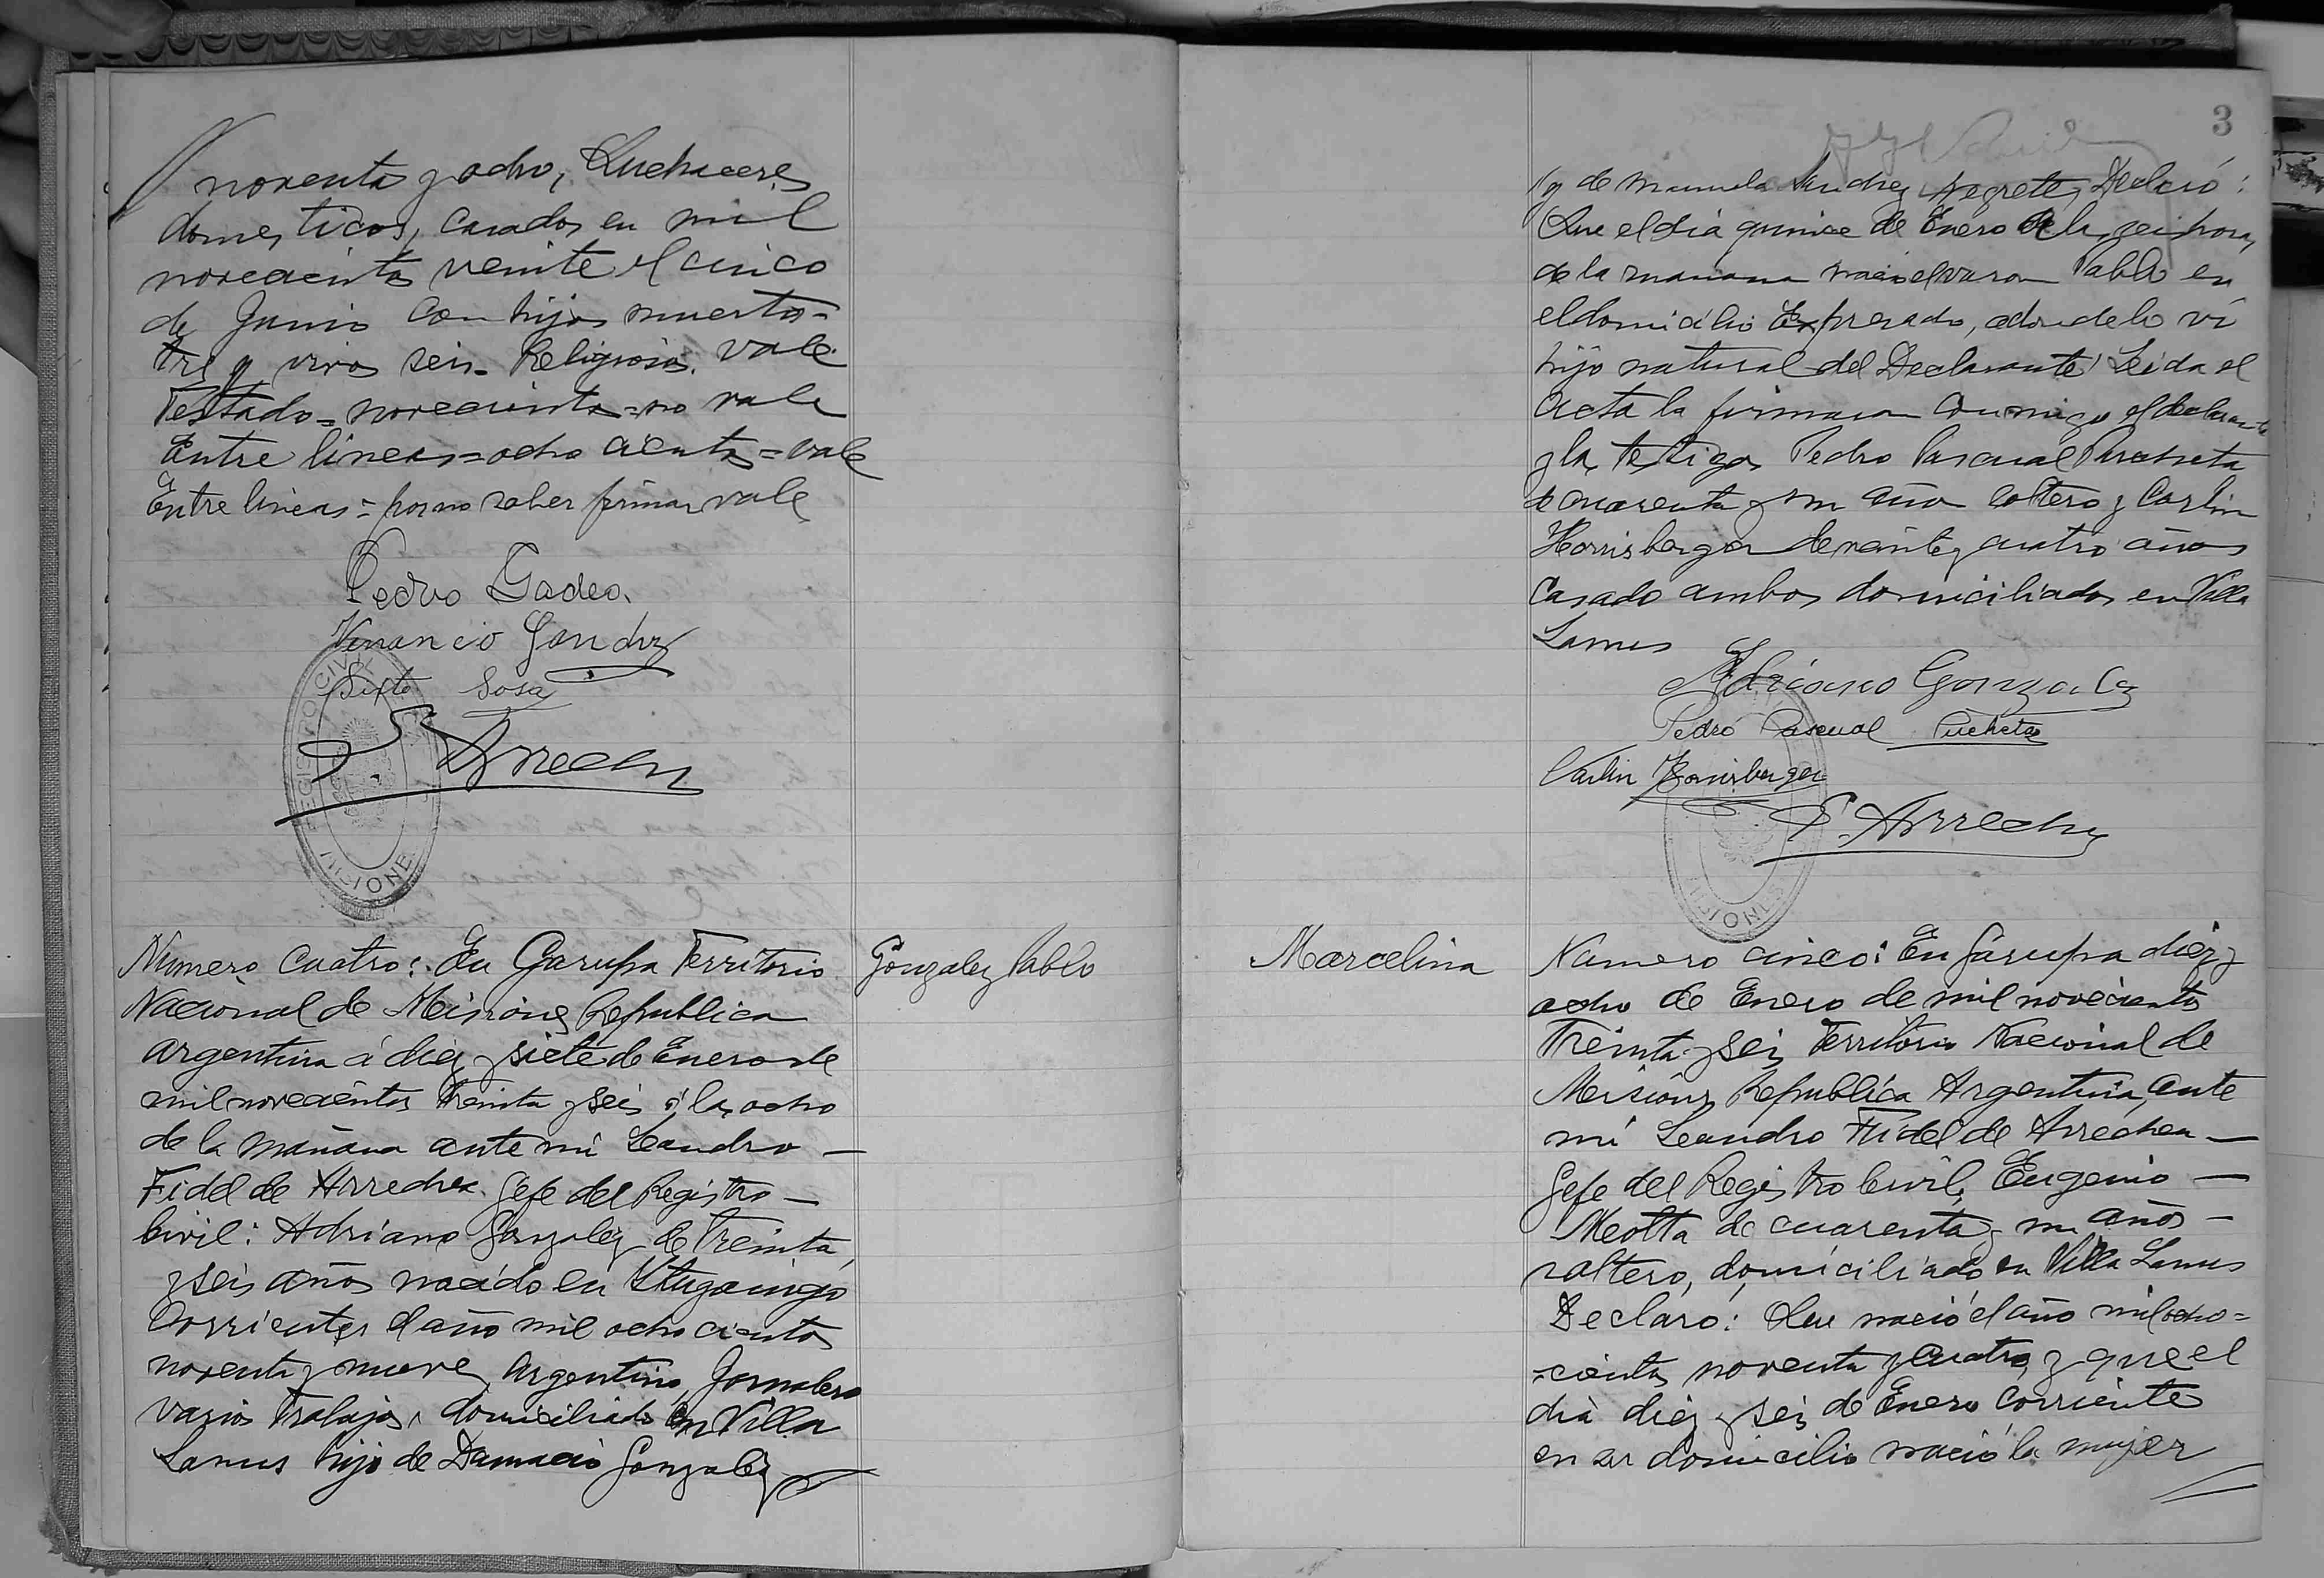 noventa y ocho, Quehaceres
domesticos, casados en mil
novecientos veinte el cinco
de Junio con hijos muertos=
tres y vivos seis. Religiosa. vale.
Testado=novecientos=no vale
Entre lineas=ocho cientos=vale
Entre lineas=por no saber firmar vale
Pedro Gadea.
Venancio
Sixto Sosa
Arrechea
REGISTRO CIVIL
MISIONES
Numero cuatro: En Garupa Territorio
Nacional de Misiones Republica
Argentina á diez y siete de Enero de
mil novecientos treinta y seis á las ocho
de la mañana ante mi Leandro —
Fidel de Arrechea Gefe del Registro —
Civil: Adriano Gonzalez de treinta
y seis años nacido en Ytuzaingo
Corrientes el año mil ocho cientos
noventa y nueve, Argentino, Jornalero
varios trabajos, domiciliado en Villa
Lanus hijo de Damacio Gonzalez
Gonzalez Pablo
3
y de Manuela Negrete, Declaró:
Que el dia quince de Enero a las seis horas
de la mañana nació el varon Pablo en
el domicilio expresado, adonde lo vi
hijo natural del Declarante Leida el
Acta la firmaron conmigo el declarante
y los testigos Pedro Pascual Puchetta
de cuarenta y un años soltero y Carlin
Hornisberger de veinte y cuatro años
Casado ambos domiciliados en Villa
Lanus
Adriano Gonzalez
Pedro Pascual Pucheta
Carlin Hornisberger
F. Arrechea
MISIONES
Marcelina
Numero cinco: En Garupa diez y
ocho de Enero de mil novecientos
Treinta y seis Territorio Nacional de
Misiones Republica Argentina, ante
mi Leandro Fidel de Arrechea —
Gefe del Registro Civil, Eugenio —
Meotta de cuarenta y un años —
soltero, domiciliado en Villa Lanus
Declaró: Que nació el año mil ocho=
=cientos noventa y cuatro, y que el
dia diez y seis de Enero corriente
en su domicilio nació la mujer